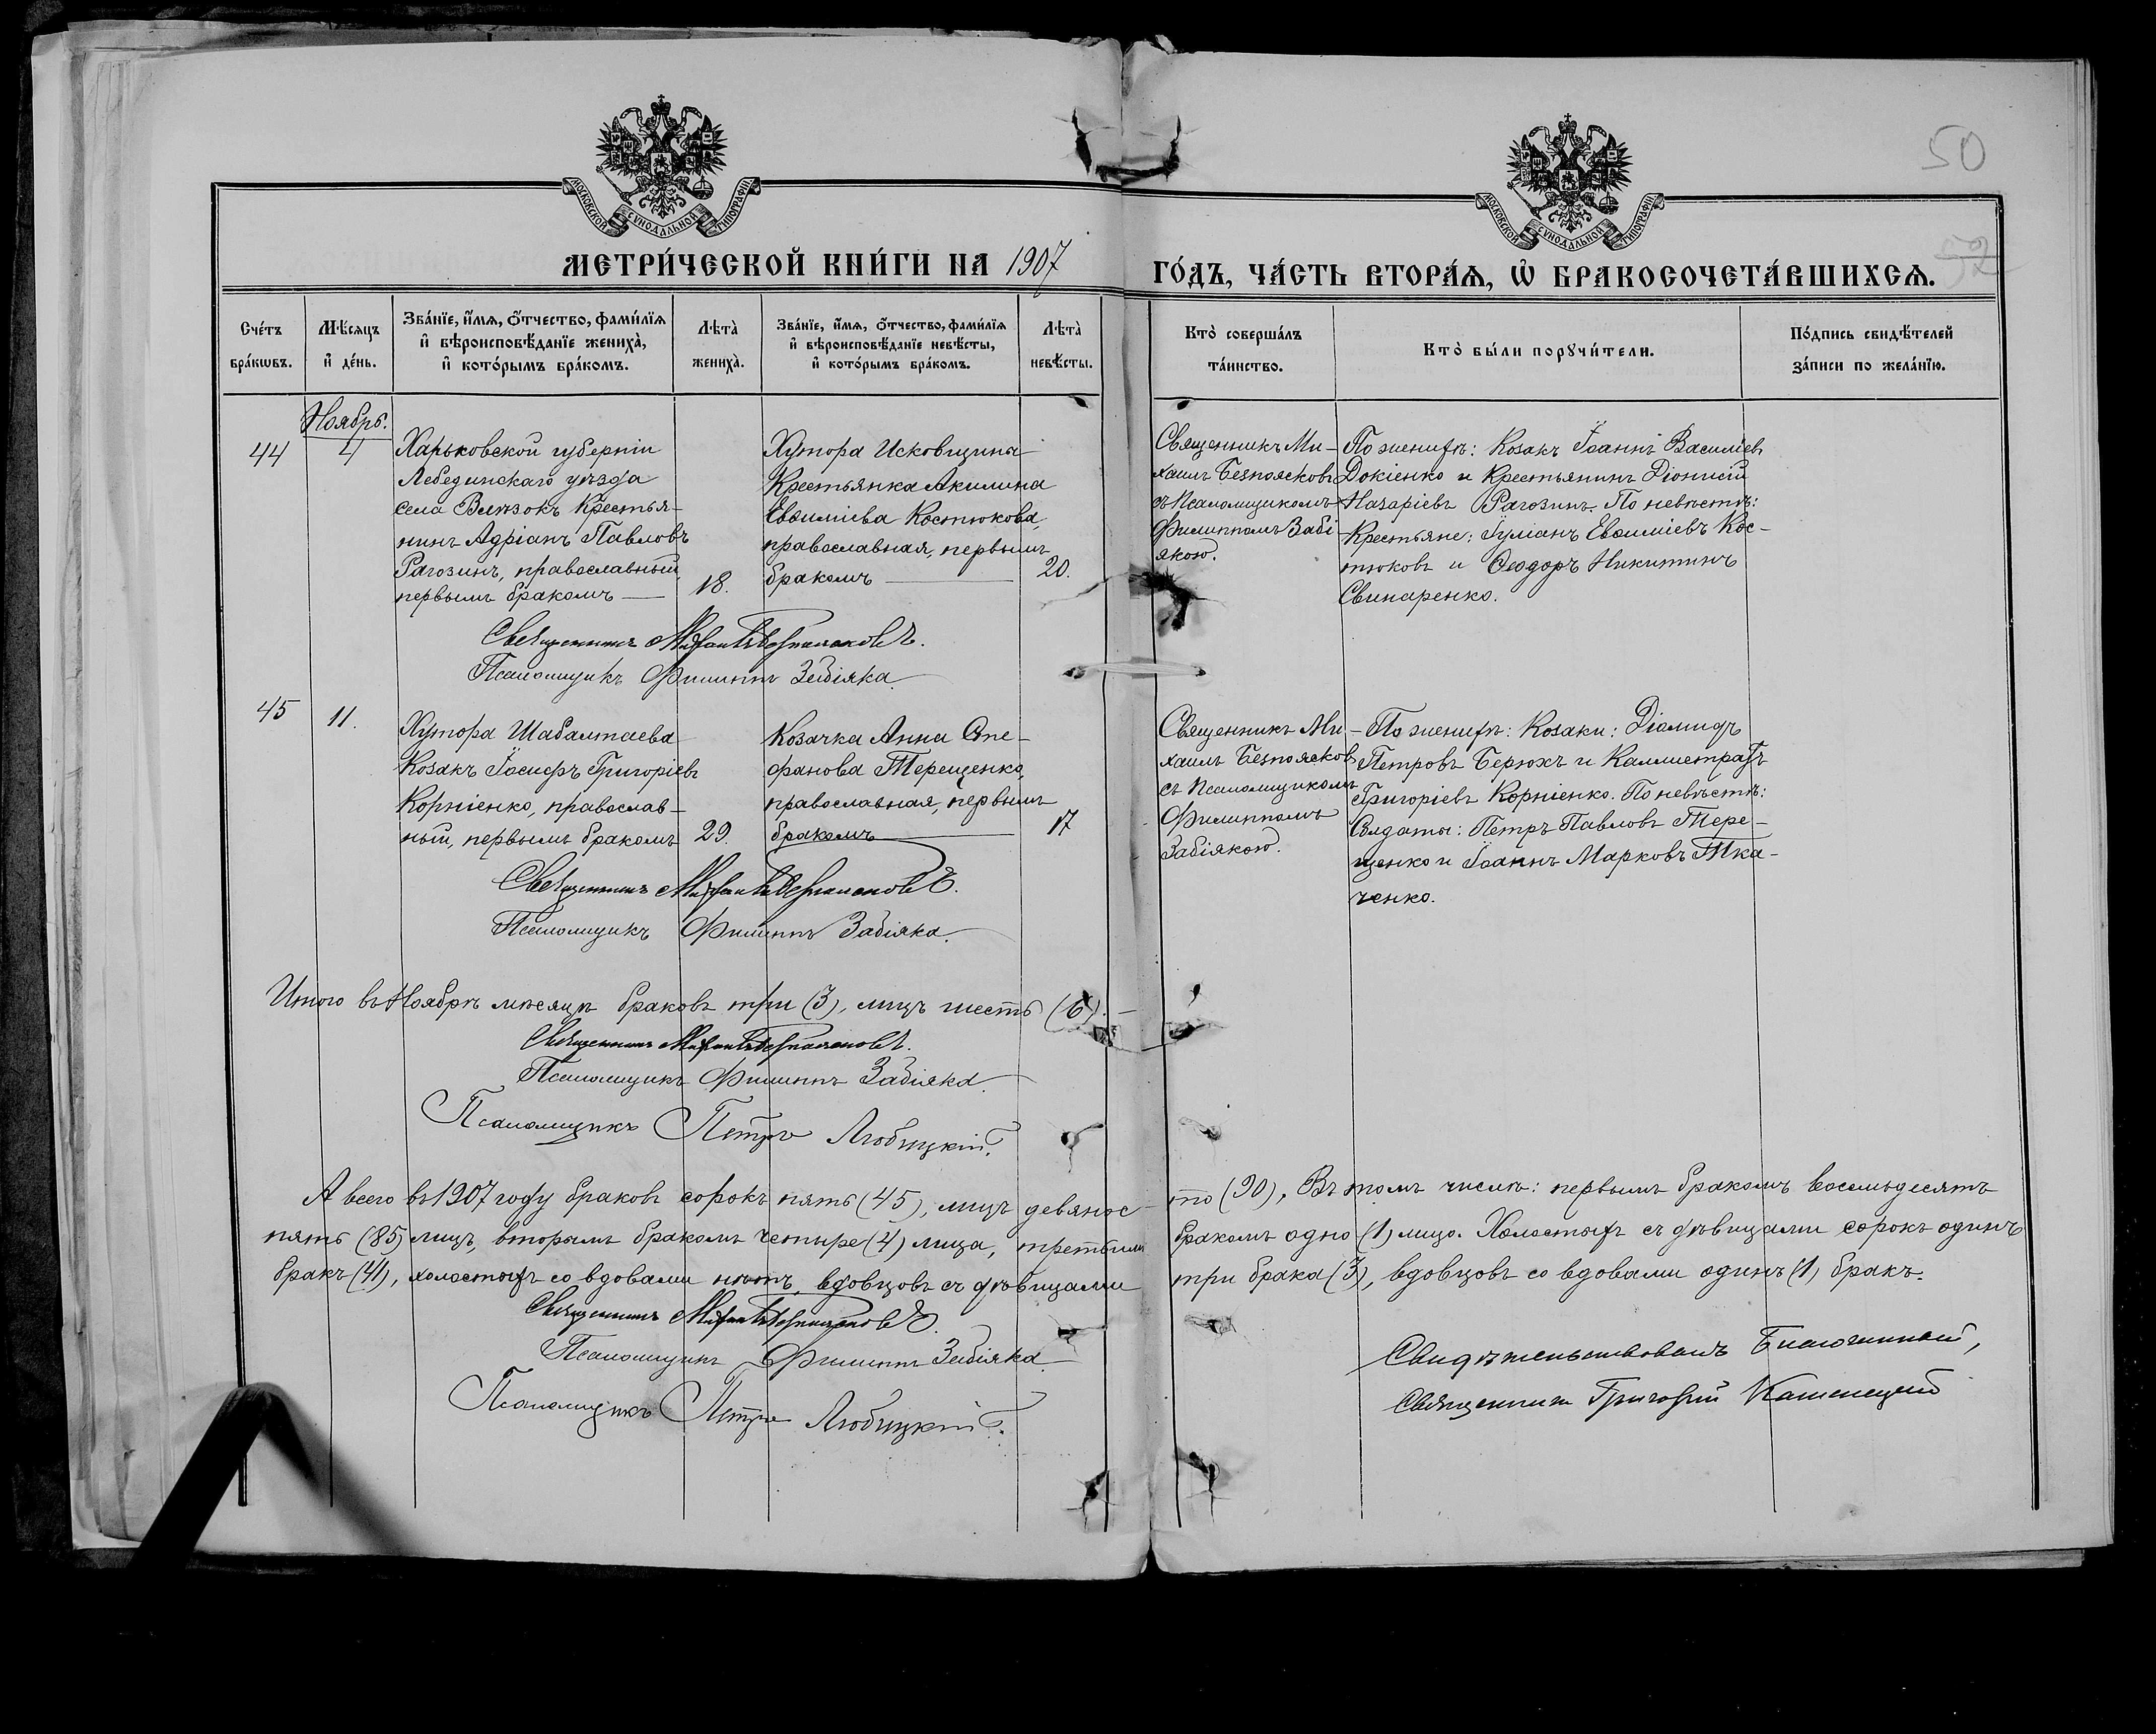 50
52
МОСКОВСКОЙ СѴНОДАЛЬНОЙ ТИПОГРАФІИ
МОСКОВСКОЙ СѴНОДАЛЬНОЙ ТИПОГРАФІИ
МЕТРИ́ЧЕСКОЙ КНИ́ГИ НА 1907 ГО́ДЪ, ЧА́СТЬ ВТОРА́Ѧ, Ѽ БРАКОСОЧЕТА́ВШИХСѦ.
Сче́тъ бра́кѡвъ.
Мѣ́сяцъ и҆ де́нь.
Зва́нїе, и҆́мѧ, ѻ҆́тчество, фами́лїѧ
и҆ вѣроисповѣ́данїе жениха̀,
и҆ кото́рымъ бра́комъ.
Лѣта̀ жениха̀.
Зва́нїе, и҆́мѧ, ѻ҆́тчество, фами́лїѧ
и҆ вѣроисповѣ́данїе невѣ́сты,
и҆ кото́рымъ бра́комъ.
Лѣта̀ невѣ́сты.
Кто̀ соверша́лъ та́инство.
Кто̀ бы́ли порꙋчи́тели.
По́дпись свидѣ́телей
за́писи по жела́нїю.
Ноябрь.
44
4
Харьковской губерніи
Лебединскаго уѣзда
села Вилѣзокъ Крестья-
нинъ Адріанъ Павловъ
Рагозинъ, православный,
первымъ бракомъ
18.
Хутора Исковщины
Крестьянка Акилина
Евѳиміева Костюкова,
православная, первымъ
бракомъ
20.
Священникъ Ми-
хаилъ Безпоясковъ
съ Псаломщикомъ
Филиппомъ Забі-
якою.
По женихѣ: Козакъ Іоаннъ Василіевъ
Докіенко и Крестьянинъ Діонисій
Назаріевъ Рагозинъ. По невѣстѣ:
Крестьяне: Іуліанъ Евѳиміевъ Кос-
тюковъ и Ѳеодоръ Никитинъ
Свинаренко.
Священникъ Михаилъ Безпоясковъ.
Псаломщикъ Филиппъ Забіяка.
45
11.
Хутора Шабалтаева
Козакъ Іосифъ Григоріевъ
Корніенко, православ-
ный, первымъ бракомъ
29.
Козачка Анна Сте-
фанова Терещенко,
православная, первымъ
бракомъ
17
Священникъ Ми-
хаилъ Безпоясковъ
съ Псаломщикомъ
Филиппомъ
Забіякою.
По женихѣ: Козаки: Діамидъ
Петровъ Берюхъ и Каллистратъ
Григоріевъ Корніенко. По невѣстѣ:
Солдаты: Петръ Павловъ Тере-
щенко и Іоаннъ Марковъ Тка-
ченко.
Священникъ Михаилъ Безпоясковъ.
Псаломщикъ Филиппъ Забіяка.
Итого въ Ноябрѣ мѣсяцѣ браковъ три (3), лицъ шесть (6).
Священникъ Михаилъ Безпоясковъ.
Псаломщикъ Филиппъ Забіяка.
Псаломщикъ Петръ Любицкій.
А всего въ 1907 году браковъ сорокъ пять (45), лицъ девянос-то (90), Въ томъ числѣ: первымъ бракомъ восемьдесятъ
пять (85) лицъ, вторымъ бракомъ четыре (4) лица, третьимъ бракомъ одно (1) лицо. Холостыхъ съ дѣвицами сорокъ одинъ
бракъ (41), холостыхъ со вдовами нѣтъ, вдовцовъ съ дѣвицами три брака (3), вдовцовъ со вдовами одинъ (1) бракъ.
Священникъ Михаилъ Безпоясковъ.
Псаломщикъ Филиппъ Забіяка.
Псаломщикъ Петръ Любицкій.
Свидѣтельствовалъ Благочинный,
Священникъ Григорій